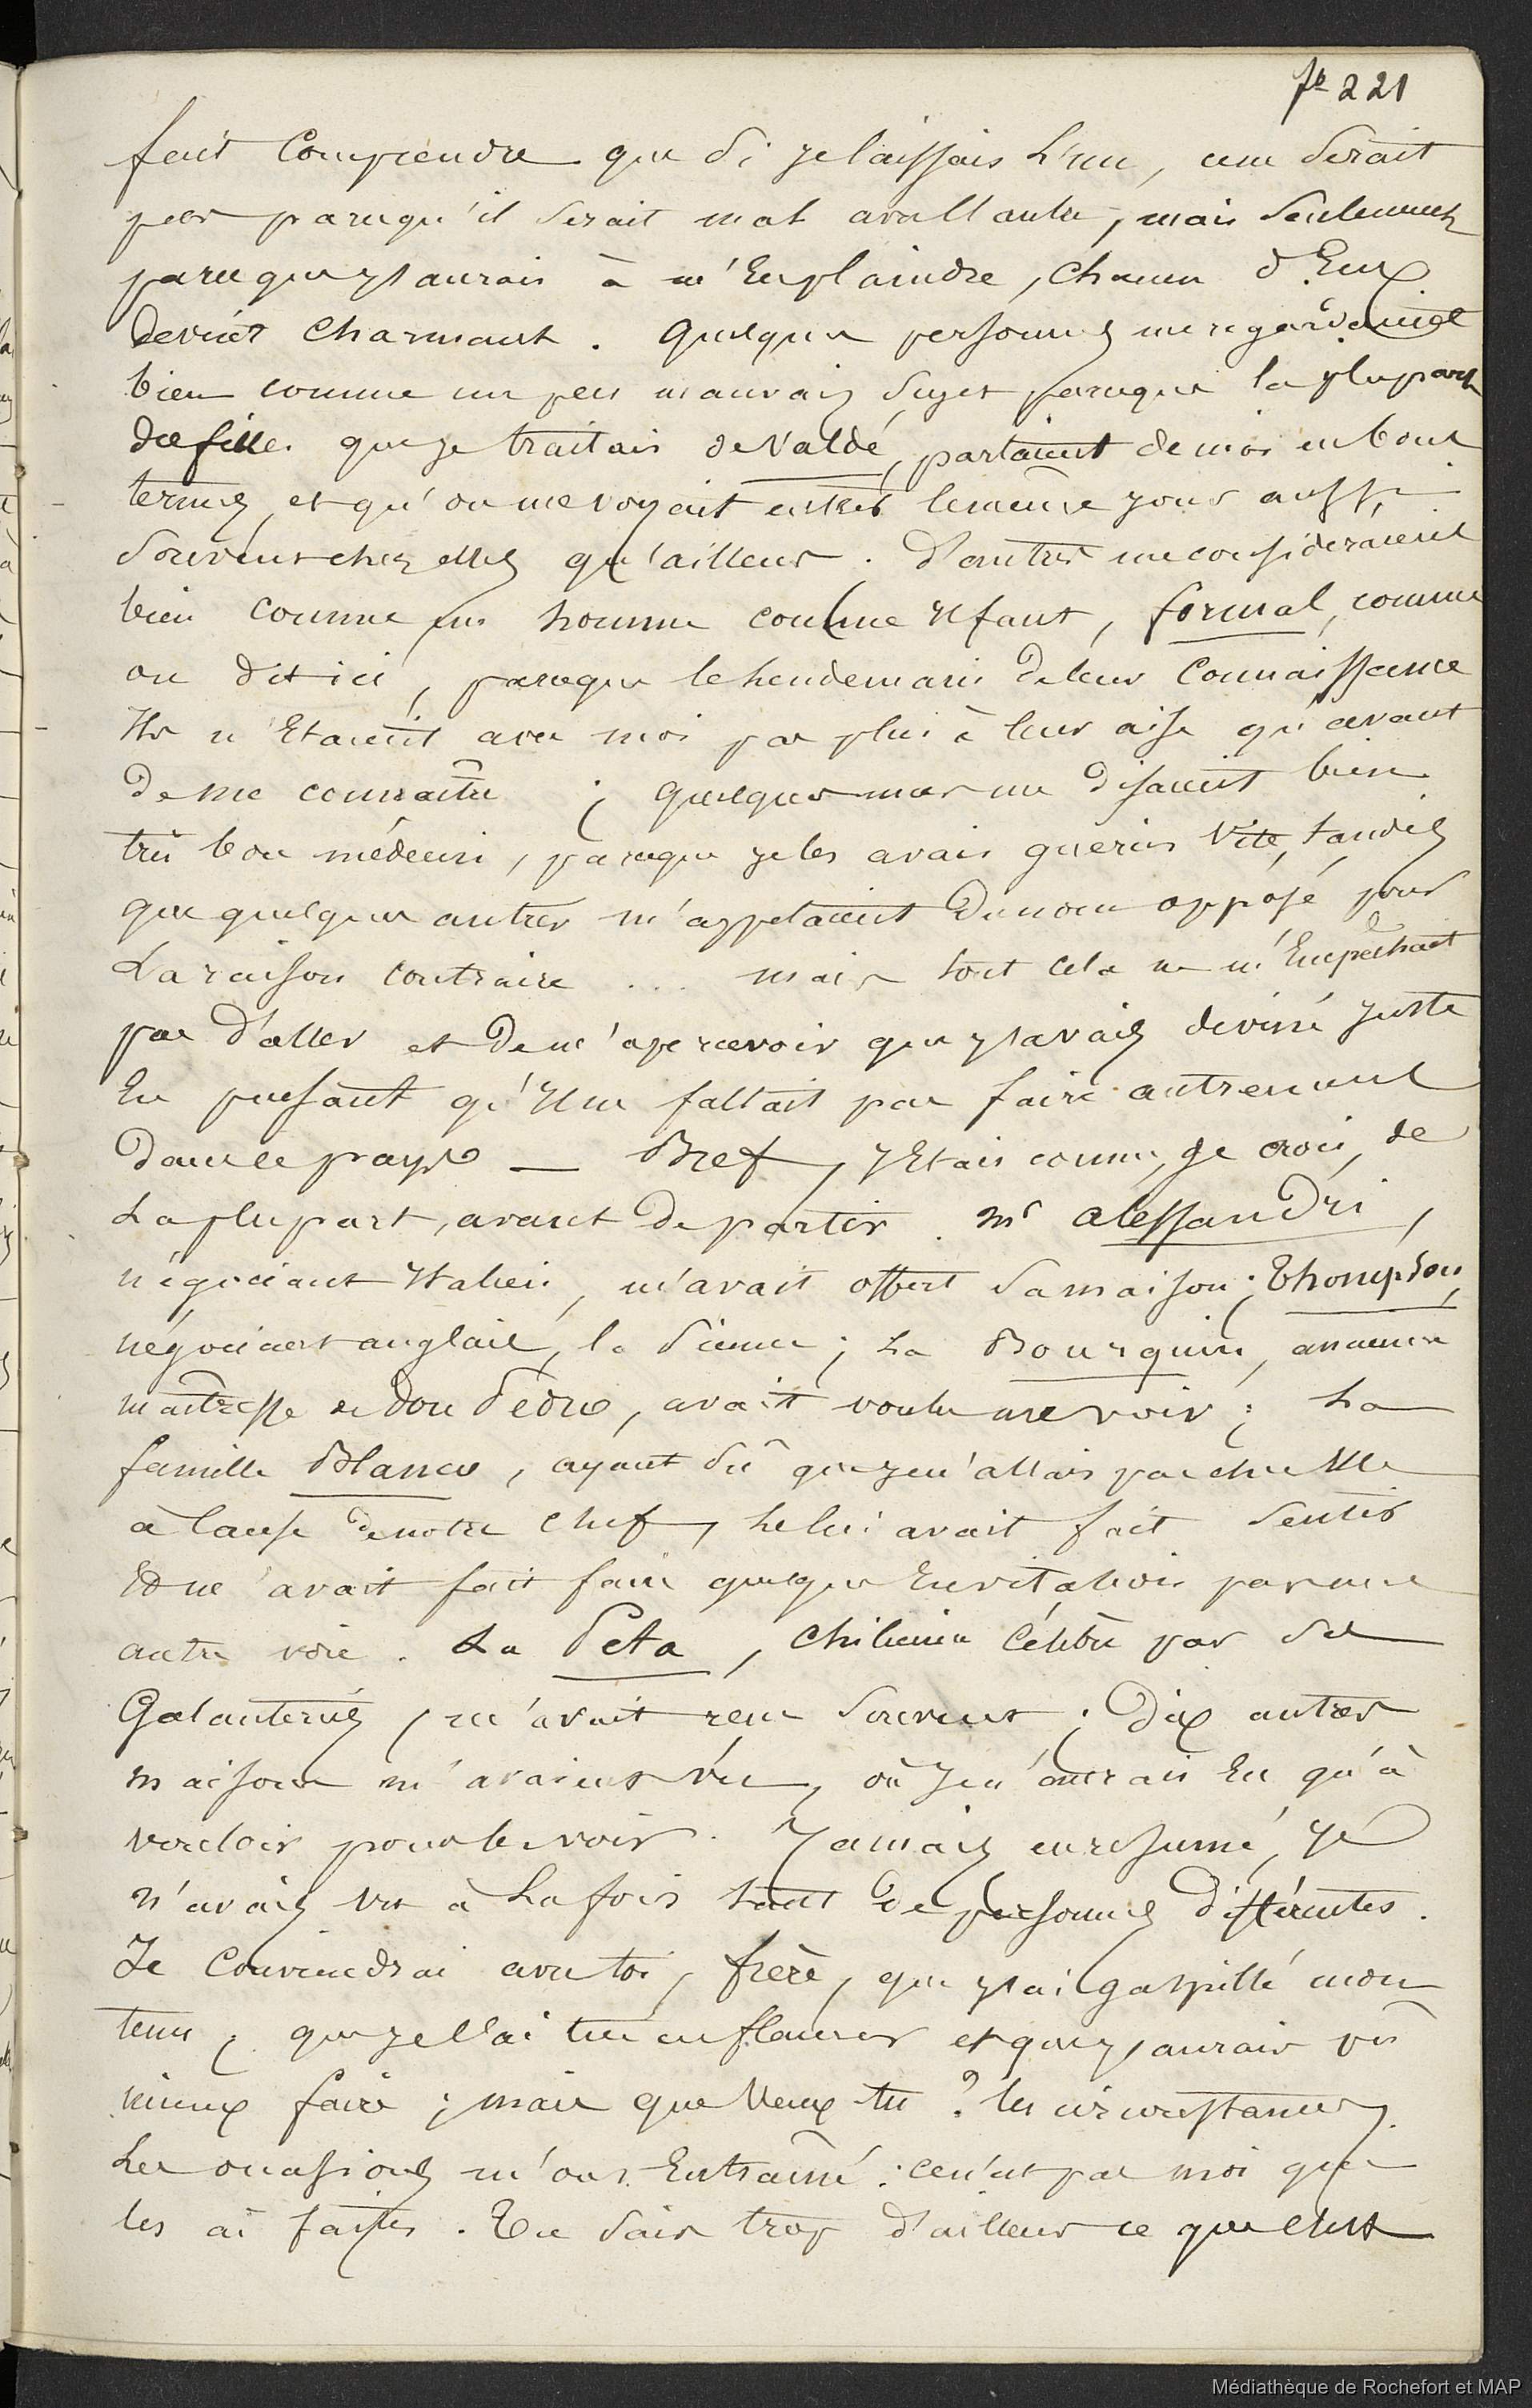 fo 221
fait comprendre que si je laissais l'un, ce ne serait
pas parce qu'il serait mal avec l'autre, mais seulement
parce que j'aurais à m'en plaindre, chacun d'Eux
devint charmant. quelques personnes me regardaient
bien comme un peu mauvais sujet parceque la plupart
des filles que je traitais de Valdé, parlaient de moi en bons
termes, et qu'on me voyait entrer le même jour aussi
souvent chez elles qu'ailleurs. D'autres me considéraient
bien comme un homme comme il faut, formal, comme
on dit ici, parceque le lendemain de leur connaissance
Ils n'Etaient avec moi pas plus à leur aise qu'avant
de me connaître ; quelques uns me disaient bien
très bon médecin, parceque je les avais guéris vite, tandis
que quelques autres m'appelaient du nom opposé pour
La raison contraire ... mais tout cela ne m'Empêchait
pas d'aller et de m'apercevoir que j'avais deviné juste
En pensant qu'Il ne fallait pas faire autrement
dans ce pays — Bref, j'Etais connu, je crois, de
La plupart, avant de partir. Mr Alessandri,
négociant Italien, m'avait offert sa maison ; Thompson,
négociant anglais, la sienne ; La Bourquin, ancienne
maîtresse de Don Pedro, avait voulu me voir ; La
famille Blanco, ayant su que je n'allais pas chez Elle
à cause de notre chef, le lui avait fait sentir
Et m'avait fait faire quelques Invitations par une
autre voie. La Peta, chilienne célèbre par ses
Galanteries, m'avait reçu souvent ; Dix autres
maisons m'avaient vu, où je n'aurais Eu qu'à
vouloir pour les voir. Jamais en résumé, je
n'avais vu à La fois tant de personnes différentes.
Je conviendrai avec toi, frère, que j'ai gaspillé mon
tems, que je l'ai tué en flaneur et que j'aurais pu
mieux faire ; mais que veux-tu ? les circonstances,
Les occasions m'ont Entraîné : ce n'est pas moi qui
les ai faites. Tu sais trop d'ailleurs ce que c'est
Médiathèque de Rochefort et MAP